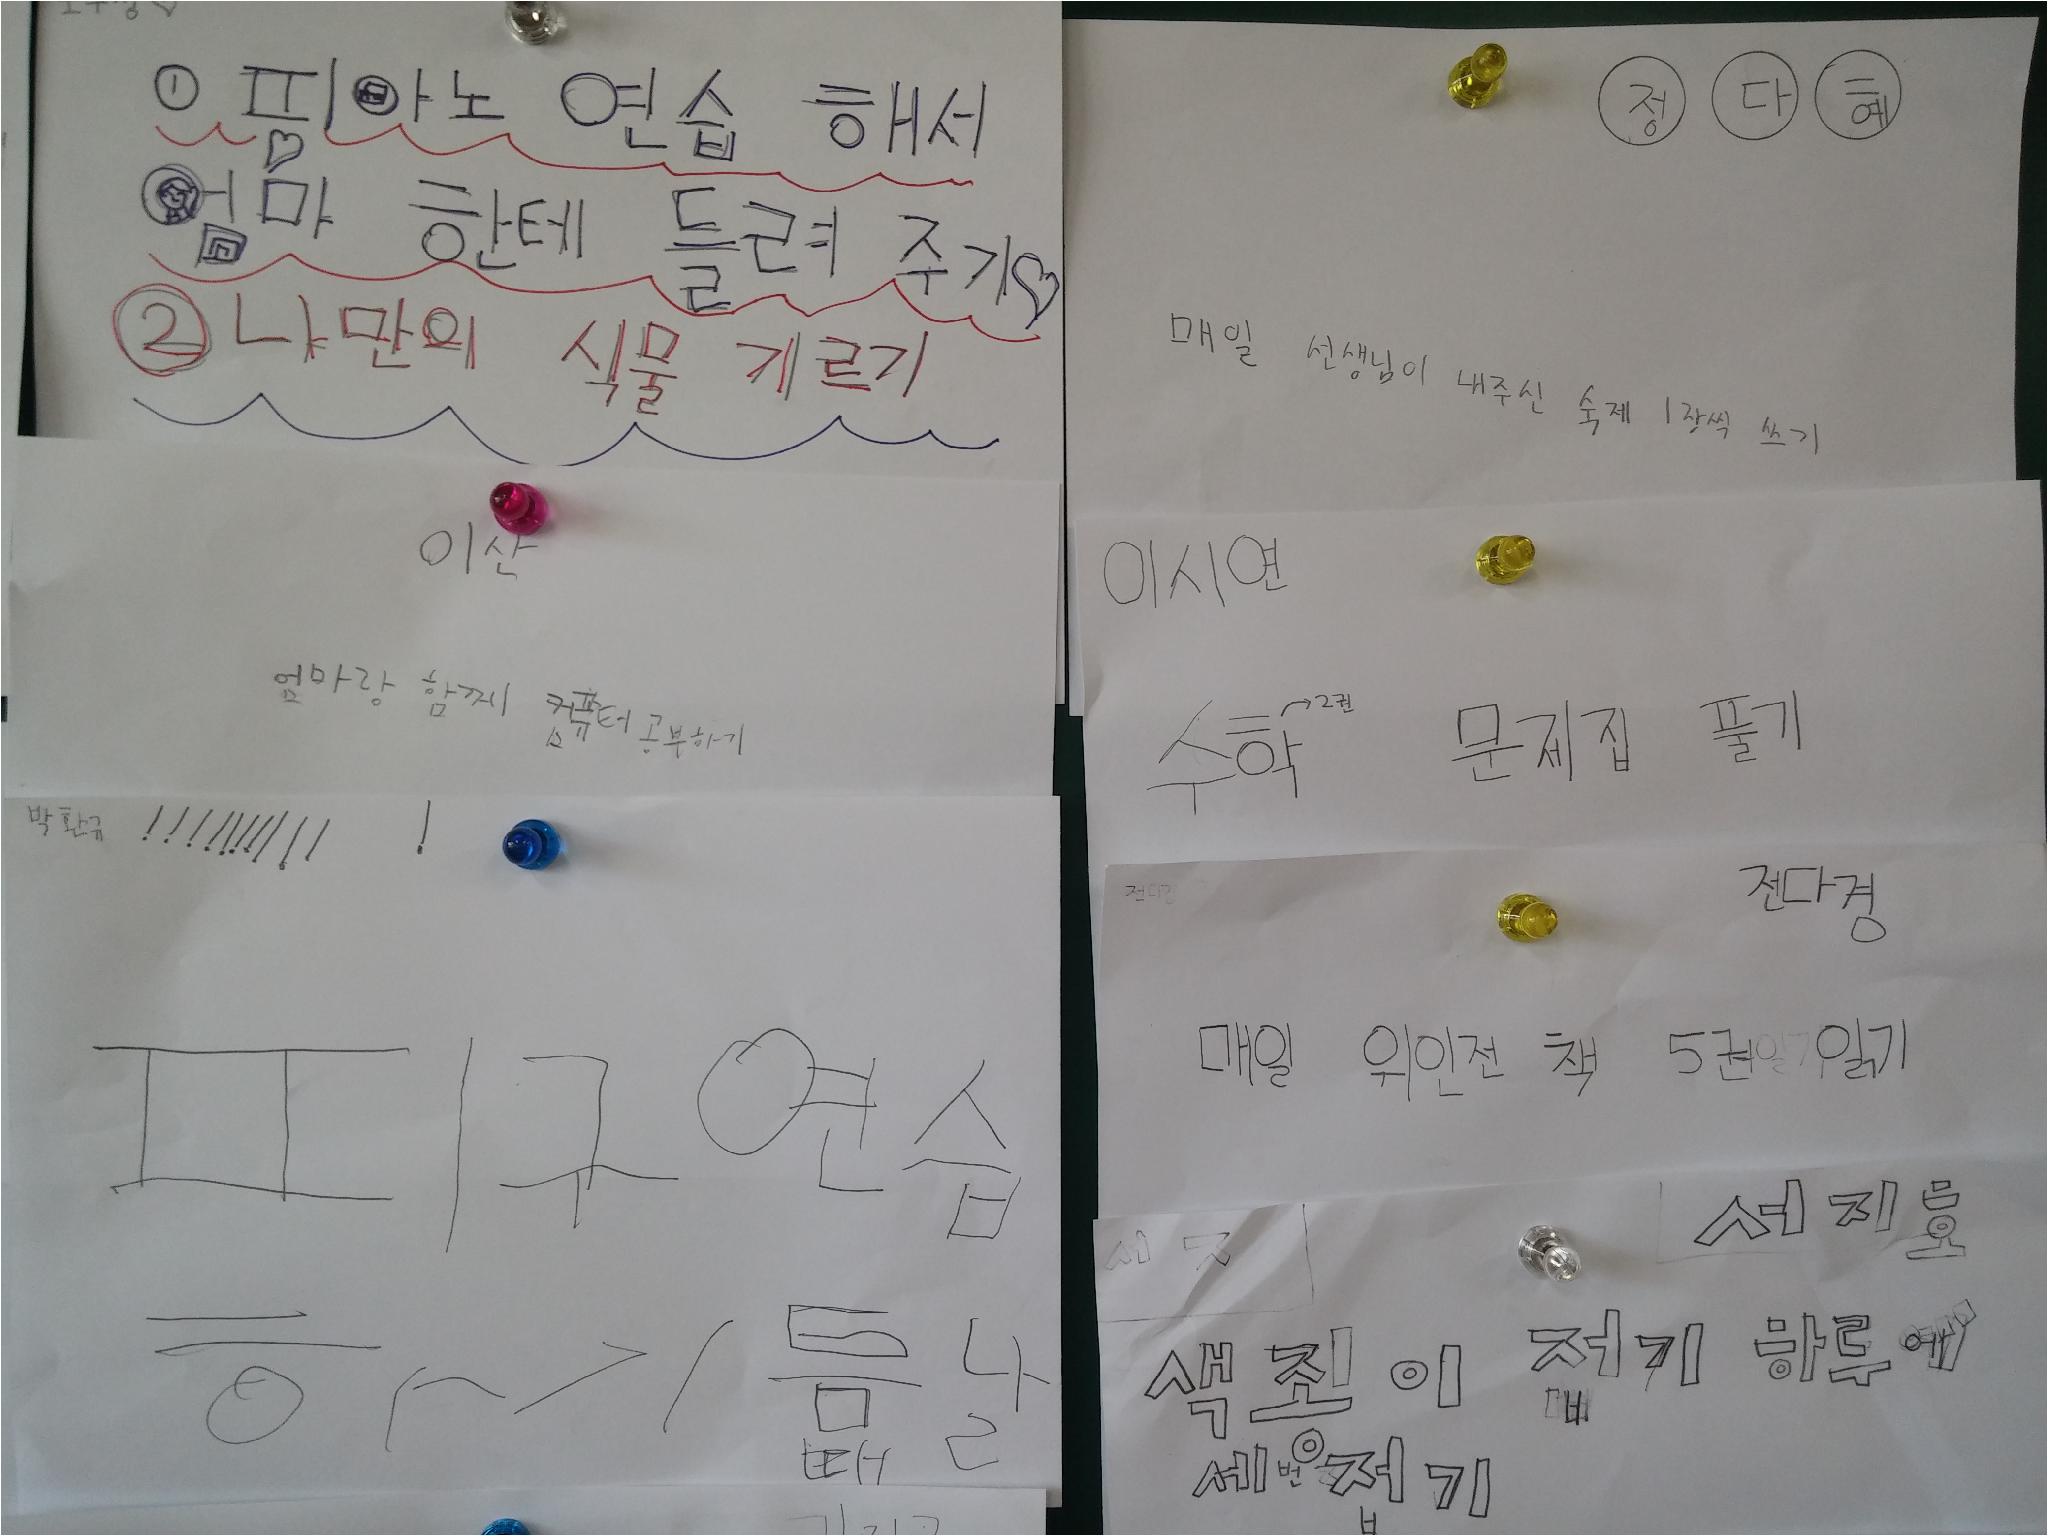 ① 피아노 연습 해서
엄마 한테 들려 주기
② 나만의 식물 기르기
이산
엄마랑 함께 컴퓨터 공부하기
박환규 !!!!!!!!!!! !
피구 연습
정다혜
매일 선생님이 내주신 숙제 1장씩 쓰기
이시연
수학 →2권 문제집 풀기
전다경
전다경
매일 위인전 책 5권 읽기
서지호
서 지
색종이 접기 하루에
세번 접기